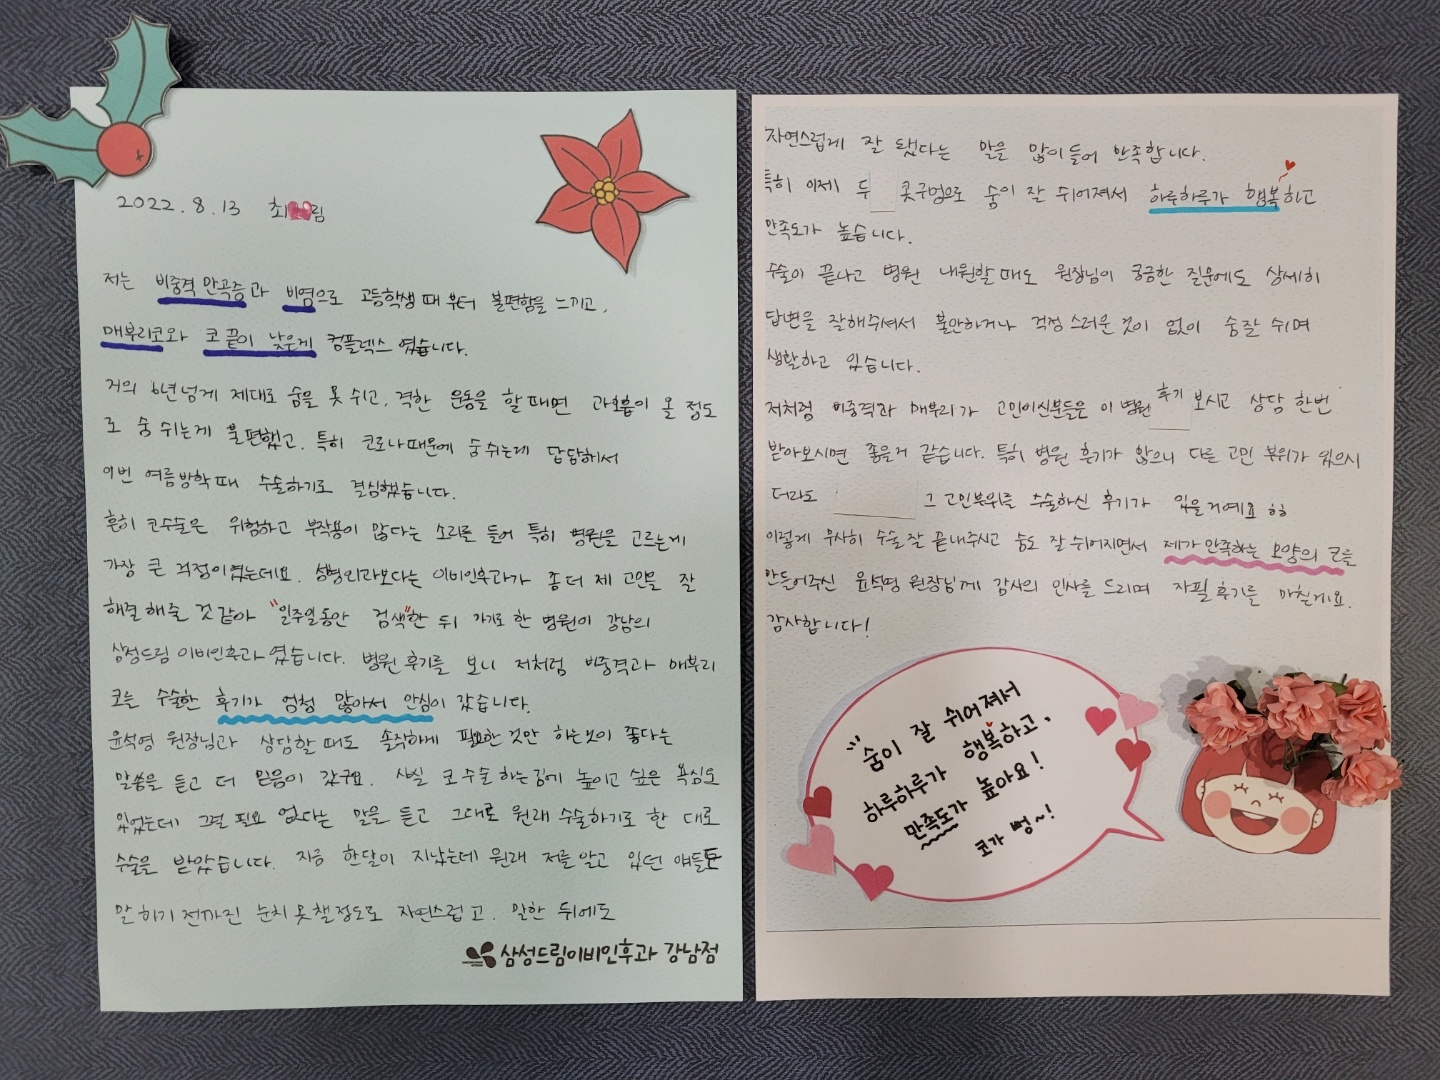 2022.8.13 최 림
저는 비중격 만곡증과 비염으로 고등학생 때 부터 불편함을 느끼고,
매부리코와 코 끝이 낮은게 컴플렉스 였습니다.
거의 6년넘게 제대로 숨을 못 쉬고, 격한 운동을 할 때면 과호흡이 올 정도
로 숨 쉬는게 불편했고, 특히 코로나때문에 숨쉬는데 답답해서
이번 여름방학 때 수술하기로 결심했습니다.
흔히 코수술은 위험하고 부작용이 많다는 소리를 들어 특히 병원을 고르는게
가장 큰 걱정이였는데요. 성형외과보다는 이비인후과가 좀 더 제 고민을 잘
해결해줄 것 같아 "일주일동안 검색"한 뒤 가기로 한 병원이 강남의
삼성드림 이비인후과 였습니다. 병원 후기를 보니 저처럼 비중격과 매부리
코를 수술한 후기가 엄청 많아서 안심이 갔습니다.
윤석영 원장님과 상담할 때도 솔직하게 필요한 것만 하는것이 좋다는
말씀을 듣고 더 믿음이 갔구요. 사실 코수술 하는김에 높이고 싶은 욕심도
있었는데 그럴 필요 없다는 말을 듣고 그대로 원래 수술하기로 한 대로
수술을 받았습니다. 지금 한달이 지났는데 원래 저를 알고 있던 애들도
말하기 전까진 눈치 못챌정도로 자연스럽고, 말한 뒤에도
삼성드림이비인후과 강남점
자연스럽게 잘 됐다는 말을 많이들어 만족합니다.
특히 이제 두 콧구멍으로 숨이 잘 쉬어져서 하루하루가 행복하고
만족도가 높습니다.
수술이 끝나고 병원 내원할 때도 원장님이 궁금한 질문에도 상세히
답변을 잘해주셔서 불안하거나 걱정 스러운 것이 없이 숨잘 쉬며
생활하고 있습니다.
저처럼 비중격과 매부리가 고민이신분들은 이 병원 후기 보시고 상담 한번
받아보시면 좋을거 같습니다. 특히 병원 후기가 많으니 다른 고민 부위가 있으시
더라도 그 고민부위를 수술하신 후기가 있을거예요 ㅎㅎ
이렇게 무사히 수술 잘 끝내주시고 숨도 잘 쉬어지면서 제가 만족하는 모양의 코를
만들어주신 윤석영 원장님께 감사의 인사를 드리며 자필 후기를 마칠게요.
감사합니다!
숨이 잘 쉬어져서
하루하루가 행복하고,
만족도가 높아요!
코가 뻥~!